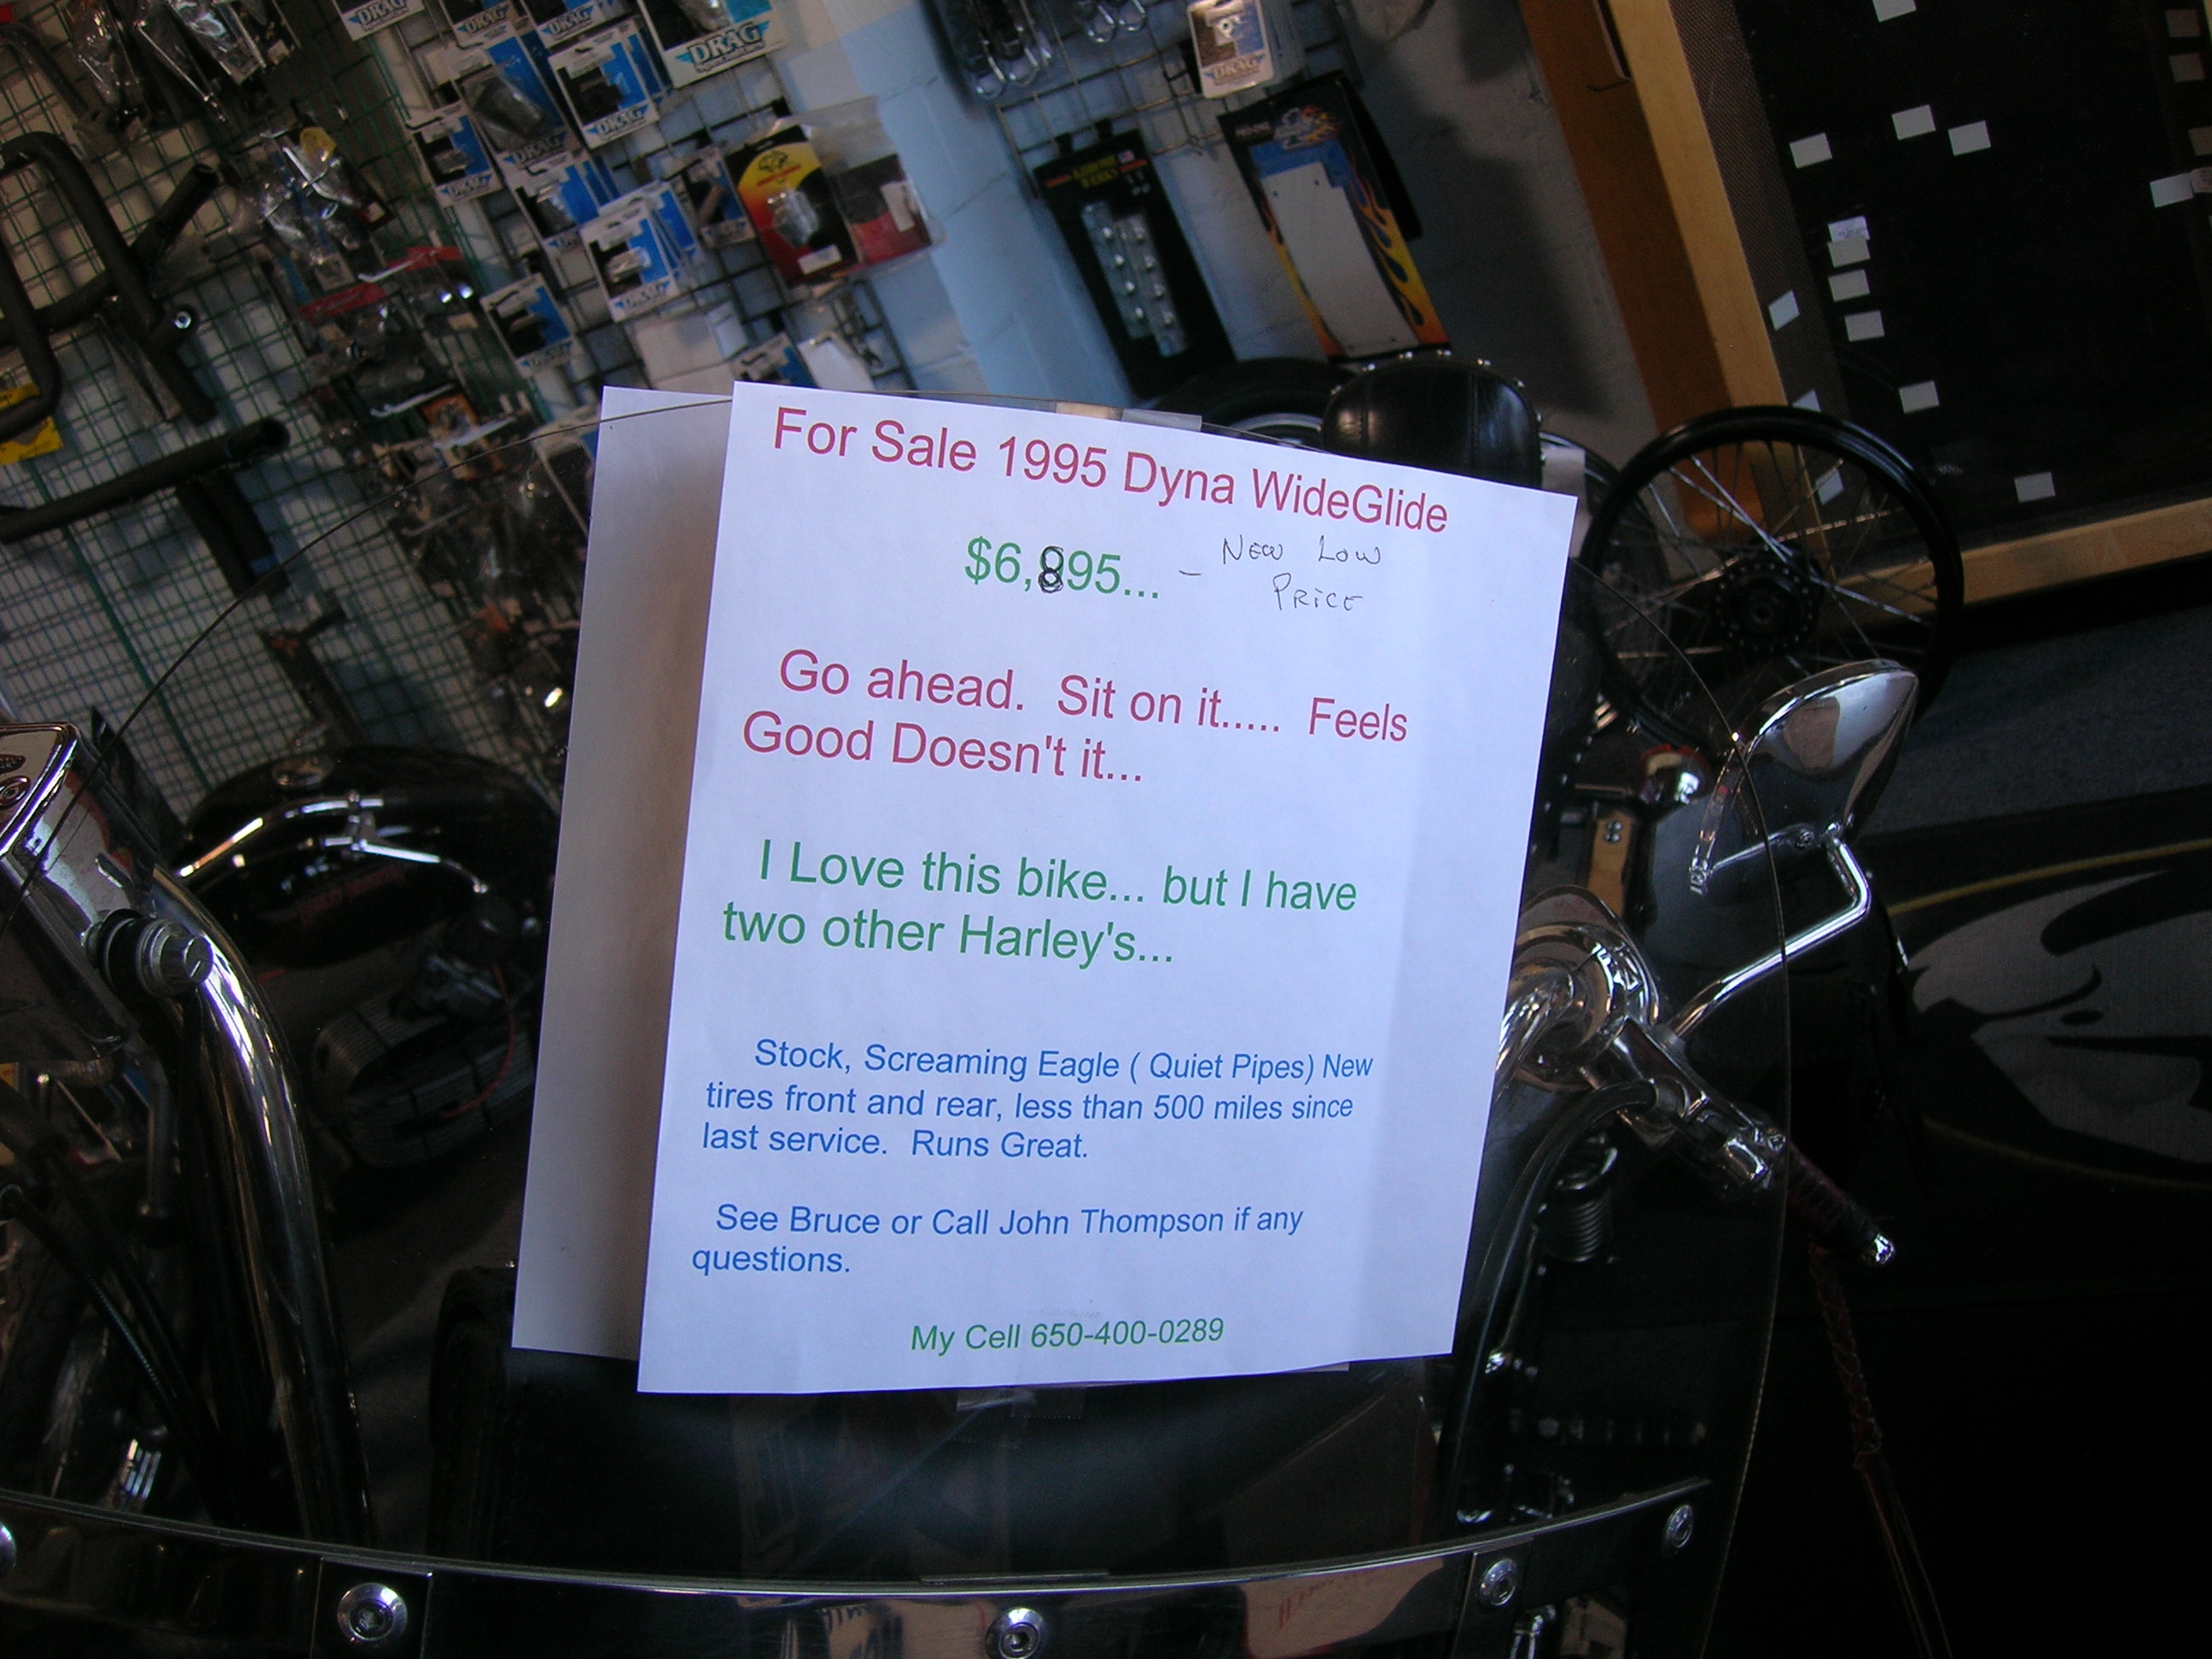 DRAG
DRAG
DRAG
DRAG
DRAG
DRAG
For Sale 1995 Dyna WideGlide
$6,895... - NEW LOW
PRICE
Go ahead.  Sit on it.....  Feels
Good Doesn't it...
I Love this bike... but I have
two other Harley's...
Stock, Screaming Eagle ( Quiet Pipes) New
tires front and rear, less than 500 miles since
last service.  Runs Great.
See Bruce or Call John Thompson if any
questions.
My Cell 650-400-0289